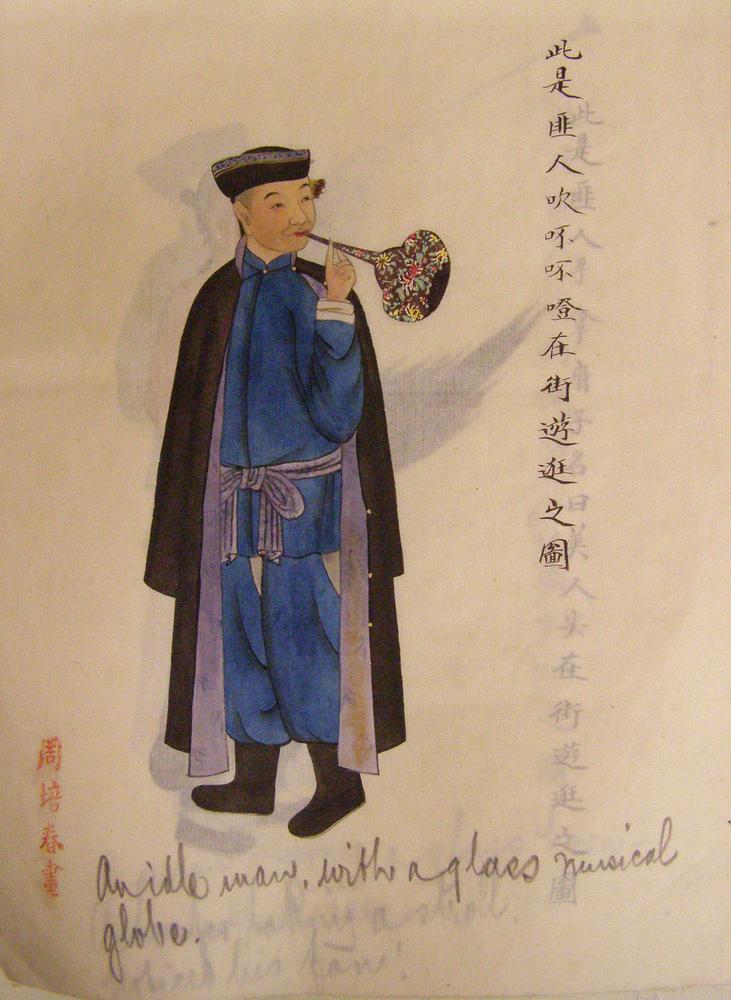 此是匪人吹吥吥噔在街遊逛之圖
周培春畫
An idle man, with a glass musical
globe.
taking a stroll.
notice his fan!